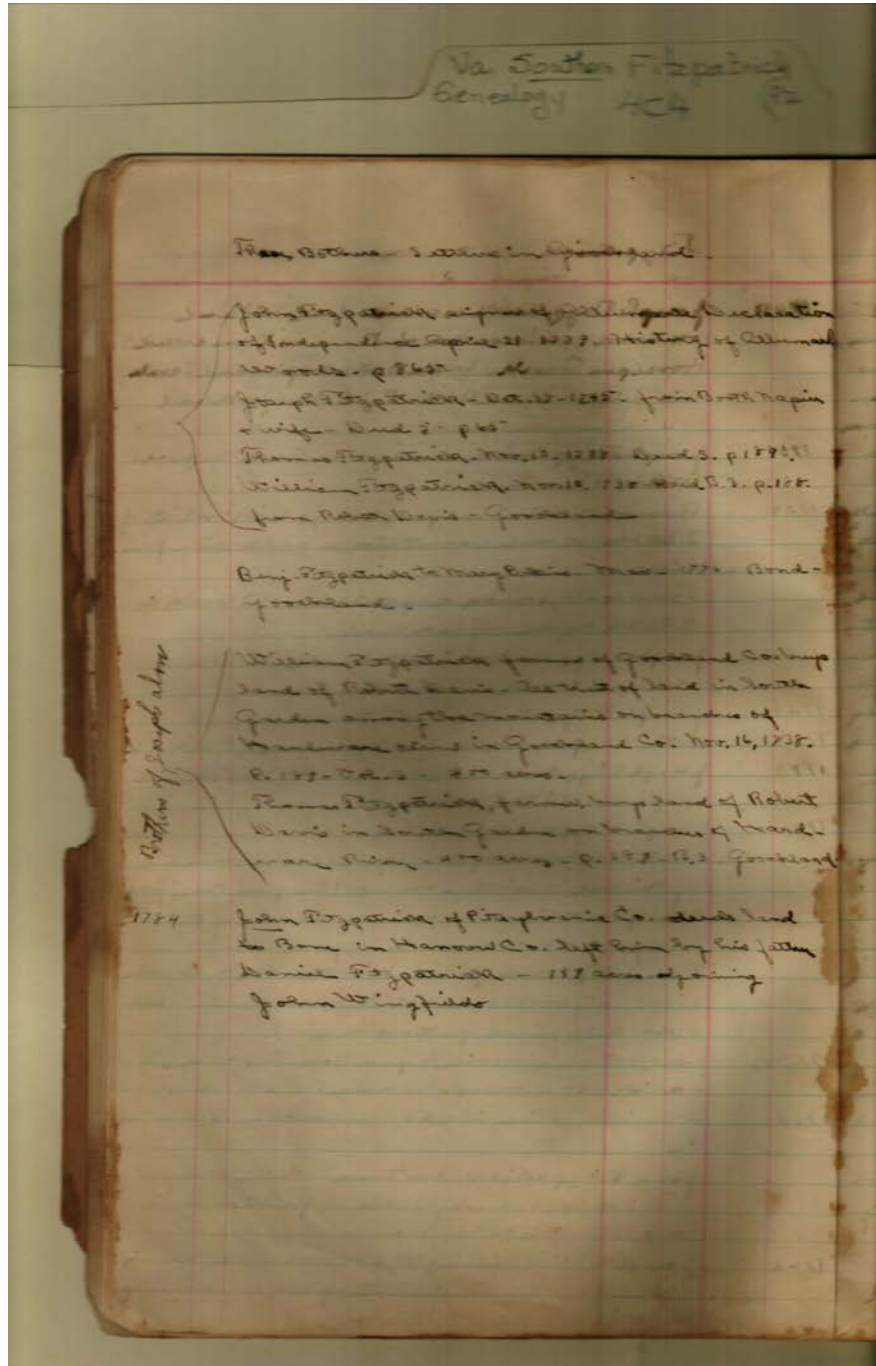 Va Southern Fitzpatrick
Genealogy 4C4
Brothers Settlers in Goochland.
John Fitzpatrick signer of Albemarle Declaration
of Independence April 21 History of Albemarle
Woods - p 365
Joseph Fitzpatrick - Oct. from Booth Napier
& wife - Deed 5 - p 65
Thomas Fitzpatrick - Nov. Deed 3. p 189.
William Fitzpatrick. Nov. Deed B. 3. p. 188.
from Robert Davis - Goochland
Benj. Fitzpatrick to Mary Bond -
Goochland.
Brothers of Joseph above
William Fitzpatrick farmer of Goochland Co. buys
land of Robert Davis - of land in South
Garden among the mountains on branches of
Hardware in Goochland Co. Nov. 16,
P. 189 - 400 acres.
Thomas Fitzpatrick, farmer, buys land of Robert
Davis in South Garden on branches of Hard-
ware River - 400 acres - p. B. 3 Goochland
1784 John Fitzpatrick of Pitsylvania Co. deeds land
to in Hanover Co. left him by his father
Daniel Fitzpatrick - acres adjoining
John Wingfields